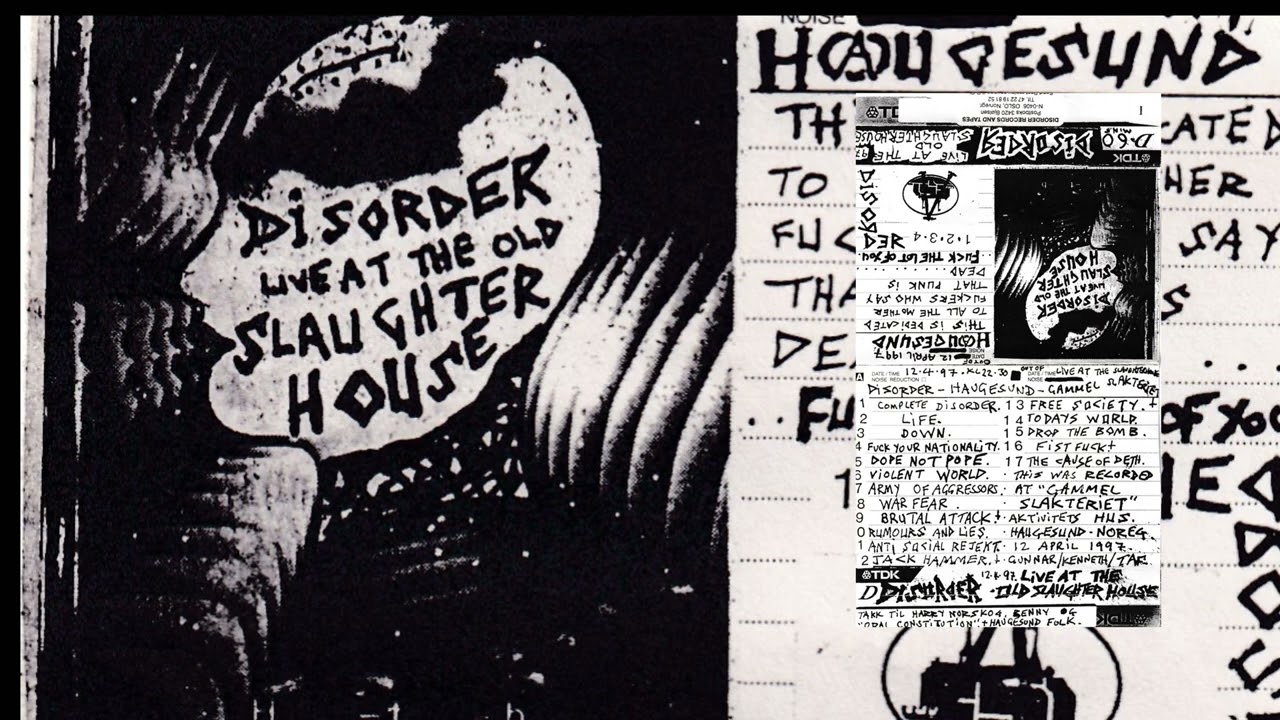 DiSORDER
LIVE AT THE OLD
SLAUGHTER
HOUSE
NOISE
HAUGESUND
TH
CATED
TO
HER
FUC
SAY
THA
S
DEA
. . .
. . FU
OF YOU
1
DISORDER RECORDS AND TAPES
Postboks 3420 Bjølsen
N-0406 OSLO, Norvegr
Tlf. 47 22 19 81 52
TDK
LiVE AT THE
OLD
SLAUGHTERHOUSE
97
DiSORDEЯ
D·60 MINS
TDK
DISORDER
1·2·3·4
FUCK THE LOT OF YOU
DEAD
THAT PUNK iS
FUCKERS WHO SAY
TO ALL THE MOTHER
THiS iS DEDiCATED
HAUGESUND
12 APRiL 1997
DATE
NOISE
DiSORDER
LIVE AT THE OLD
SLAUGHTER
HOUSE
A DATE / TIME 12.4.97. KL 22.30
NOISE REDUCTION
OUT OF
DATE / TIME LIVE AT THE SLAUGHTERHOUSE
NOISE
DiSORDER - HAUGESUND - GAMMEL SLAKTERIET
1 COMPLETE DISORDER. 13 FREE SOCIETY. +
2 LiFE. 14 TODAYS WORLD.
3 DOWN. 15 DROP THE BOMB.
4 FUCK YOUR NATIONALITY. 16 FiSTFUCK+
5 DOPE NOT POPE. 17 THE CAUSE OF DETH.
6 VIOLENT WORLD. · THIS WAS RECORDED
7 ARMY OF AGGRESSORS. AT "GAMMEL
8 WAR FEAR. SLAKTERIET"
9 BRUTAL ATTACK.+ · AKTiVITETS HUS.
0 RUMOURS AND LIES. · HAUGESUND · NOREG.
1 ANTI SOCIAL REJEKT. 12 APRIL 1997.
2 JACK HAMMER.+ · GUNNAR/KENNETH/TAF.
TDK
12.4.97. LIVE AT THE
D DISORDER · OLD SLAUGHTER HOUSE
TAKK TIL HARRY NORSK04, BENNY OG
CONSTITUTION"+ HAUGESUND FOLK.
TDK